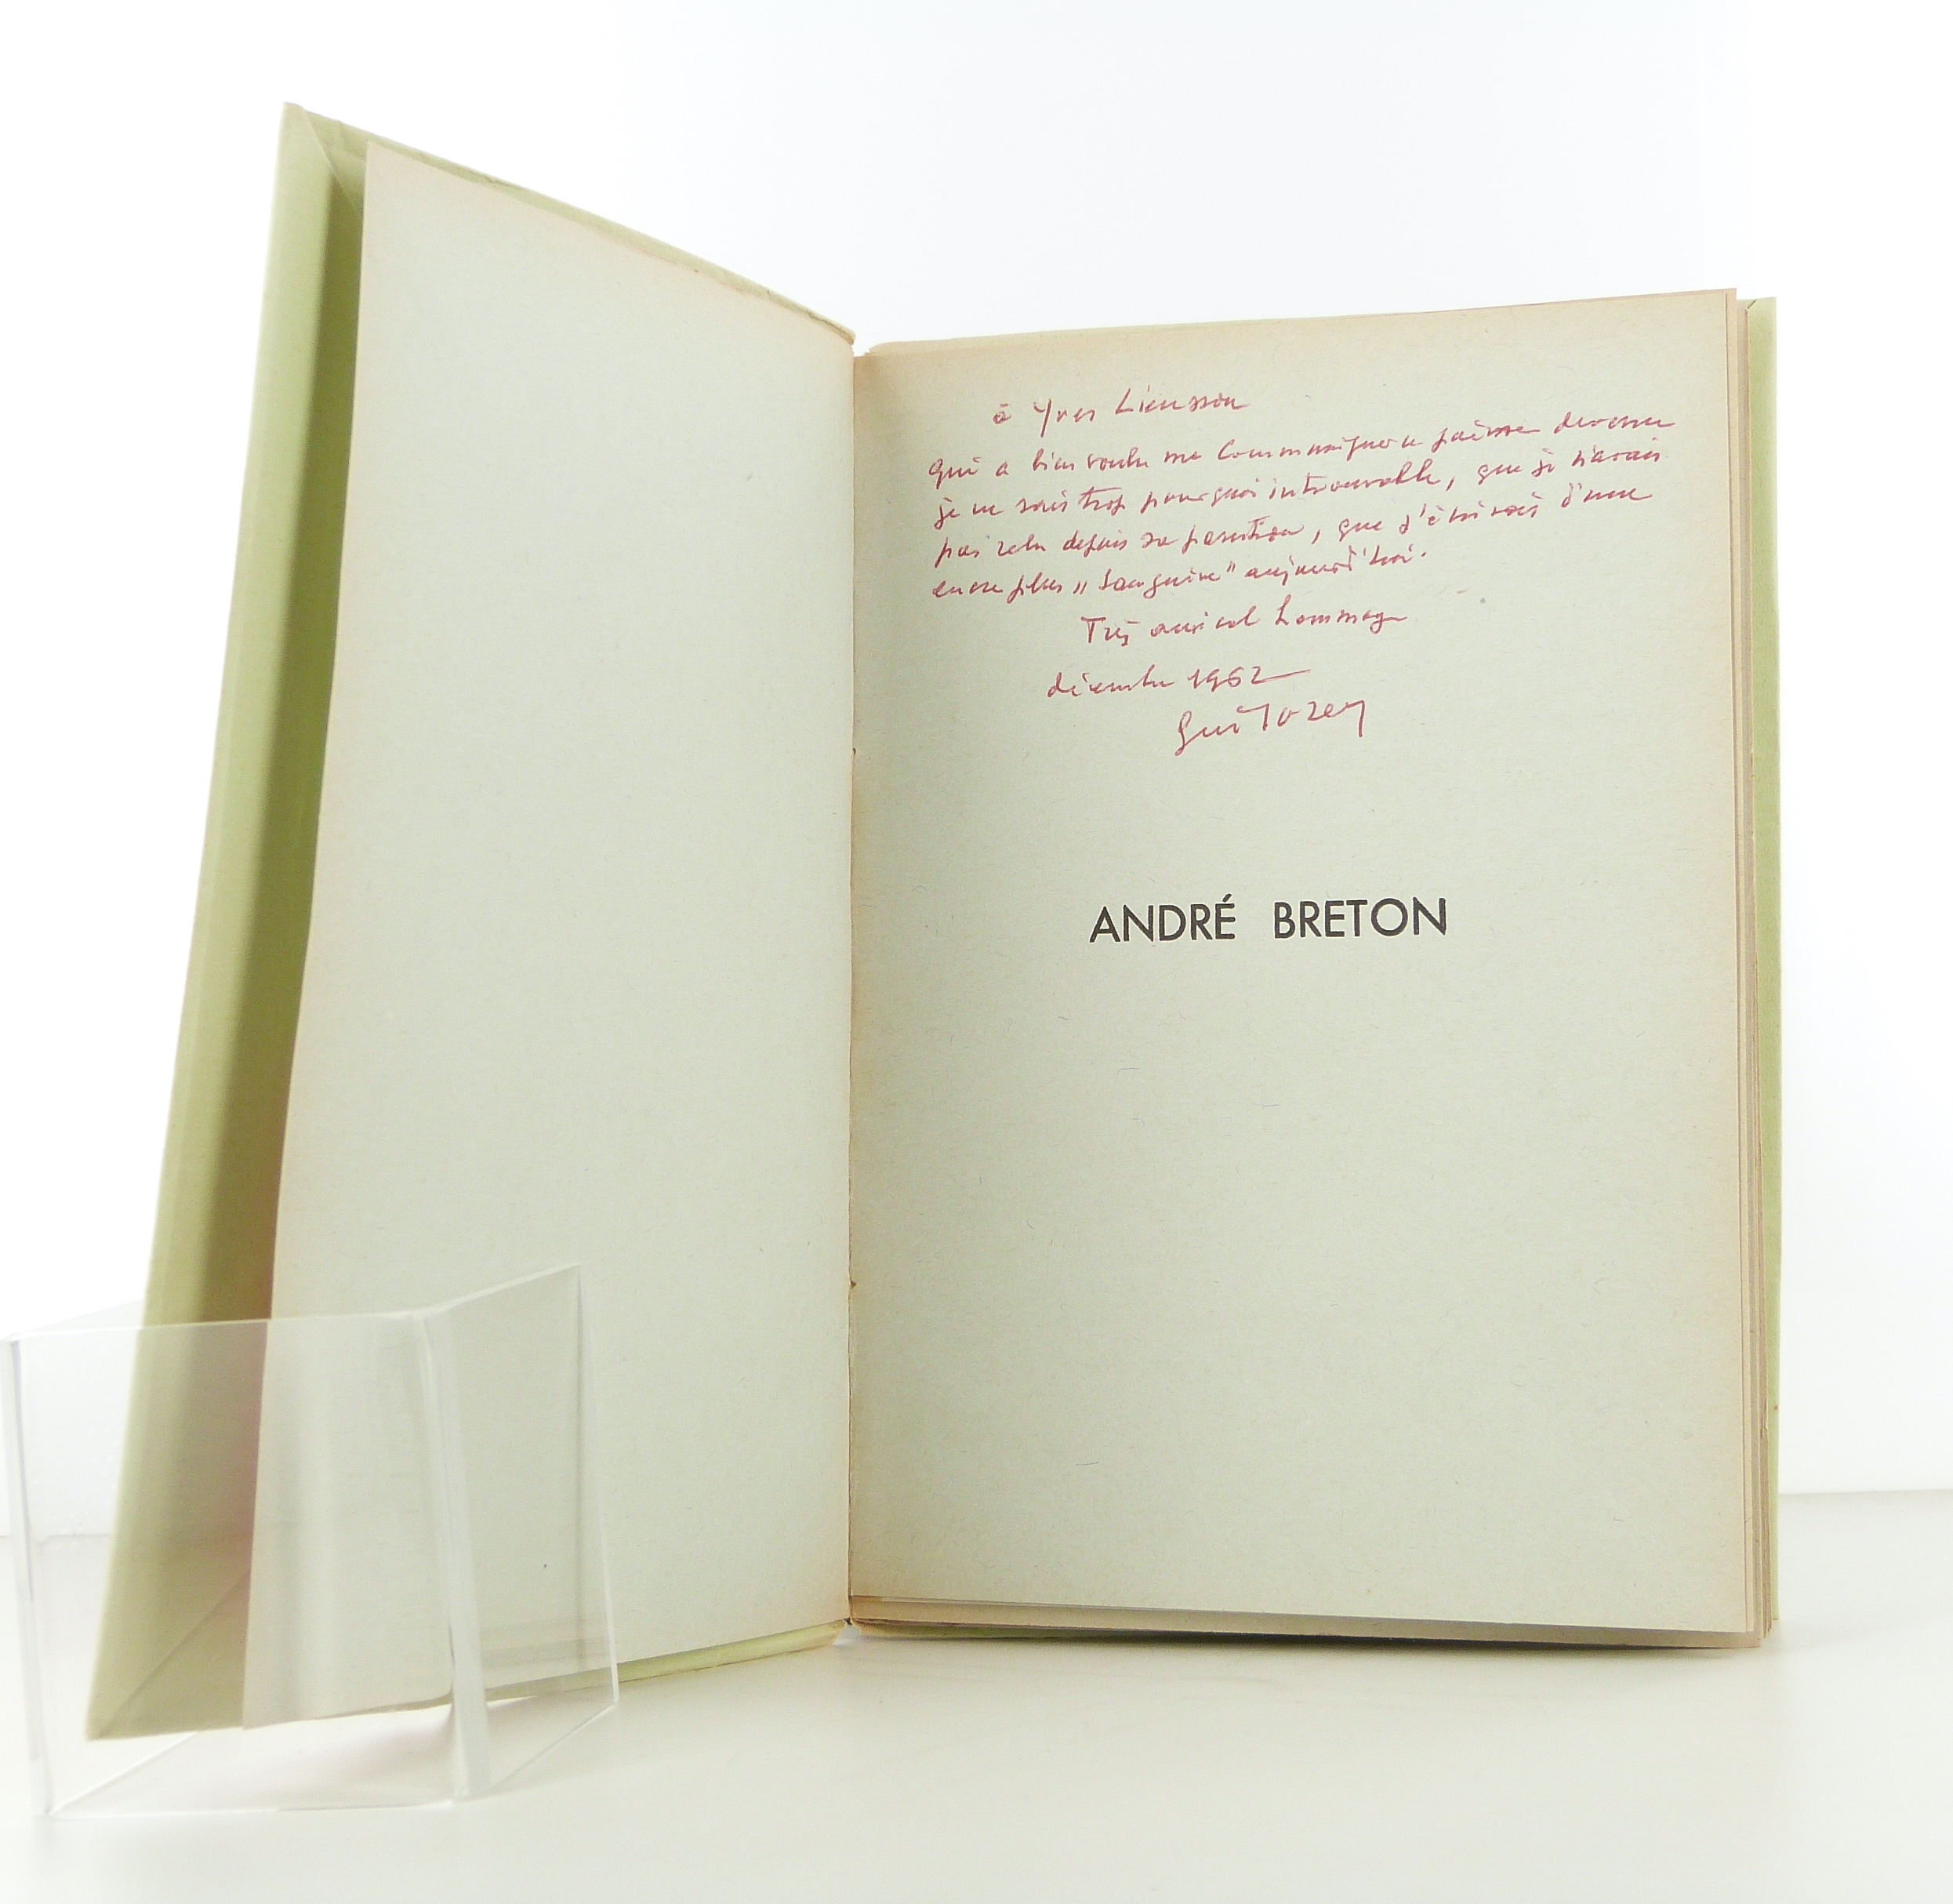 à Yves Lieusson
qui a bien voulu me communiquer ce poème devenu
je ne sais trop pourquoi introuvable, que je n'avais
pas relu depuis sa parution, que j'écrirais d'une
encre plus "sanguine" aujourd'hui.
Très amical hommage
décembre 1962
Gui Rosey
ANDRÉ BRETON